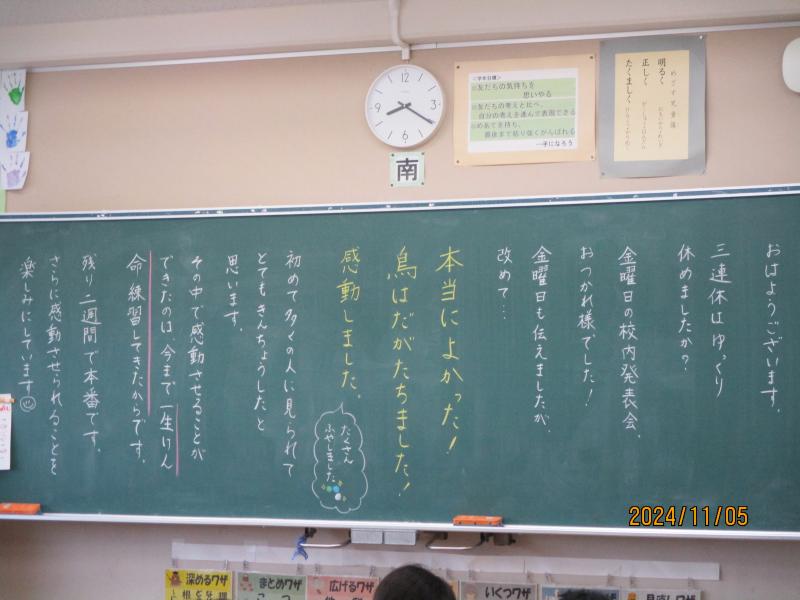 12
3
6
9
<学年目標>
友だちの気持ちを
思いやる
友だちの考えと比べ、
自分の考えを進んで表現できる
めあてを持ち、
最後まで粘り強くがんばれる
―手になろう
めざす児童像
明るく
正しく
たくましく
南
おはようございます。
三連休はゆっくり
休めましたか?
金曜日の校内発表会、
おつかれ様でした!
金曜日も伝えましたが、
改めて…
本当によかった!
鳥はだがたちました!
感動しました。
たくさん
ふやしました
初めて多くの人に見られて
とてもきんちょうしたと
思います。
その中で感動させることが
できたのは今まで一生けん
命練習してきたからです。
残り二週間で本番です。
さらに感動させられることを
楽しみにしています
2024/11/05
深めるワザ
まとめワザ
広げるワザ
いくつワザ
見直しワザ